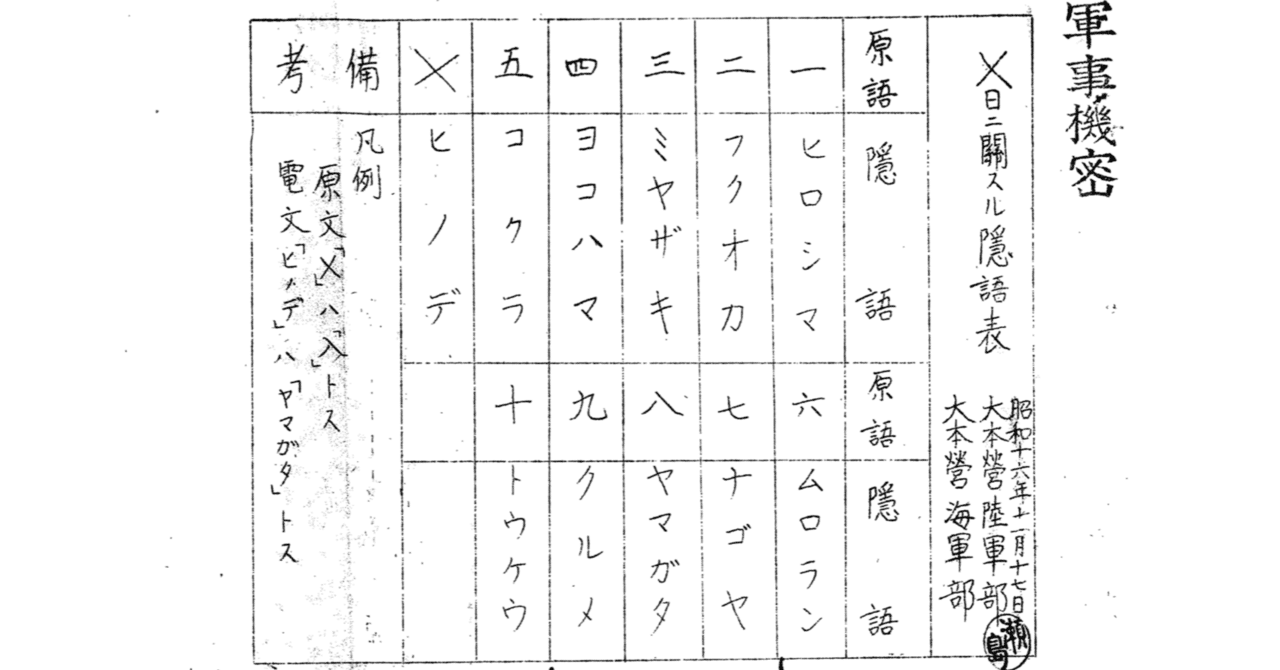 軍事機密
X日ニ關スル隠語表
昭和十六年十一月十七日
大本營陸軍部
大本營海軍部
瀬島
原語 隠語 原語 隠語
一 ヒロシマ 六 ムロラン
二 フクオカ 七 ナゴヤ
三 ミヤザキ 八 ヤマガタ
四 ヨコハマ 九 クルメ
五 コクラ 十 トウケウ
X ヒノデ
備考
凡例
原文「X」ハ「入」トス
電文「ヒノデ」ハ「ヤマガタ」トス